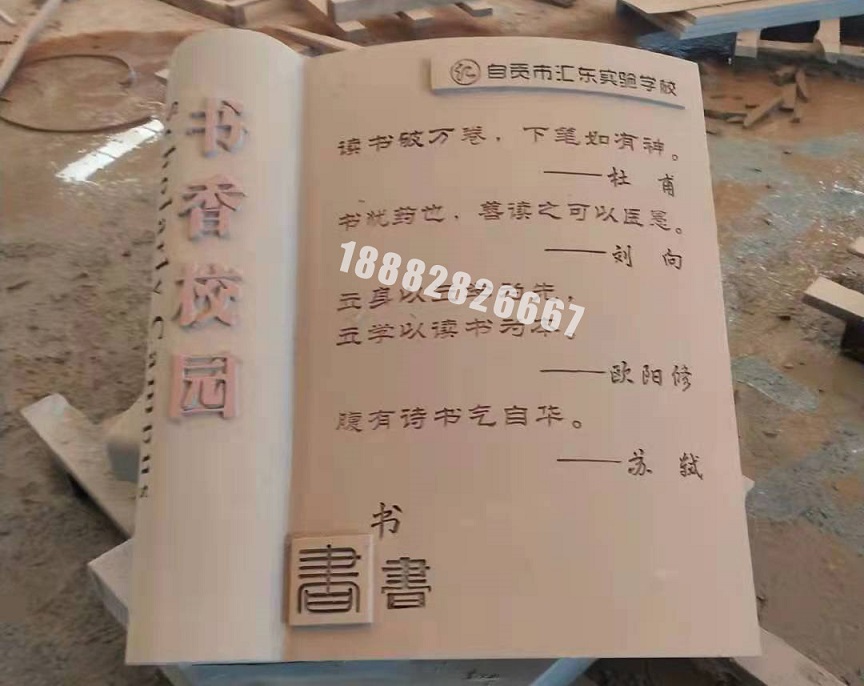 书香校园
Scholarly Campus
汇 自贡市汇东实验学校
读书破万卷，下笔如有神。
——杜 甫
书犹药也，善读之可以医愚。
——刘 向
18882826667
立身以立学为先，
立学以读书为本。
——欧阳修
腹有诗书气自华。
——苏 轼
书
書 書